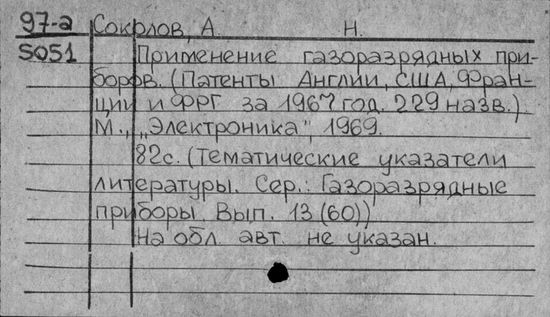 97-а Сокрлов, А. Н.
5051 Применение газоразрядных при-
боров. (Патенты Англии, США, Фран-
ции и ФРГ за 1967 год. 229 назв.)
М., "Электроника", 1969.
82с. (Тематические указатели
литературы. Сер.: Газоразрядные
приборы. Вып. 13 (60))
На обл. авт. не указан.